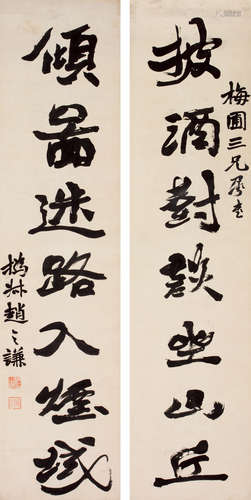 梅圃三兄属书
披酒對談坐山丘
傾囂迷路入煙域
撝叔趙之謙